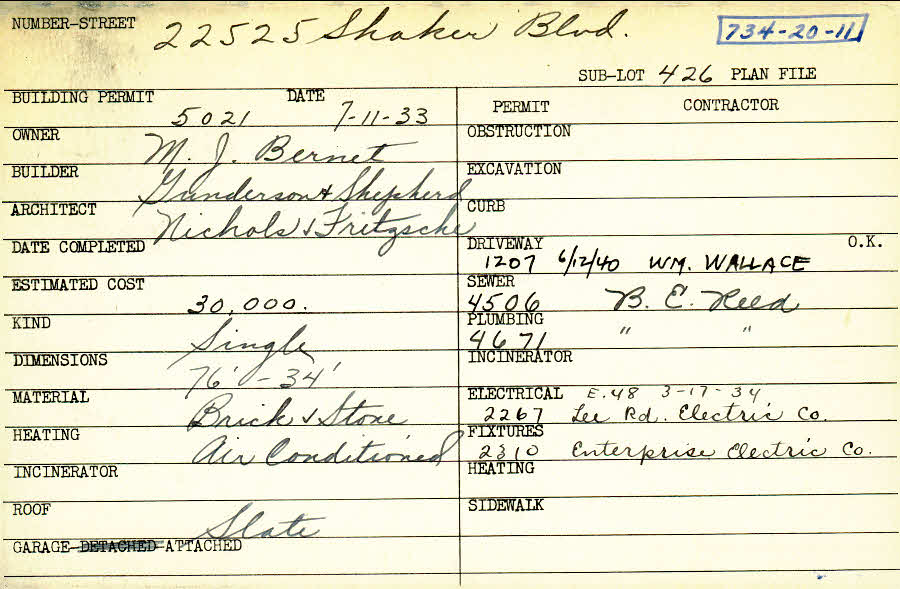 NUMBER-STREET 22525 Shaker Blvd. 734-20-11
SUB-LOT 426 PLAN FILE
BUILDING PERMIT 5021 DATE 7-11-33
OWNER M. J. Bernet
BUILDER Gunderson & Shepherd
ARCHITECT Nichols & Fritzsche
DATE COMPLETED
ESTIMATED COST 30,000.
KIND Single
DIMENSIONS 76' - 34'
MATERIAL Brick & Stone
HEATING Air Conditioned
INCINERATOR
ROOF Slate
GARAGE-DETACHED-ATTACHED
PERMIT CONTRACTOR
OBSTRUCTION
EXCAVATION
CURB
DRIVEWAY O.K.
1207 6/12/40 WM. WALLACE
SEWER
4506 B. E. Reed
PLUMBING
4671 " "
INCINERATOR
ELECTRICAL E.48 3-17-34
2267 Lee Rd. Electric Co.
FIXTURES
2310 Enterprise Electric Co.
HEATING
SIDEWALK